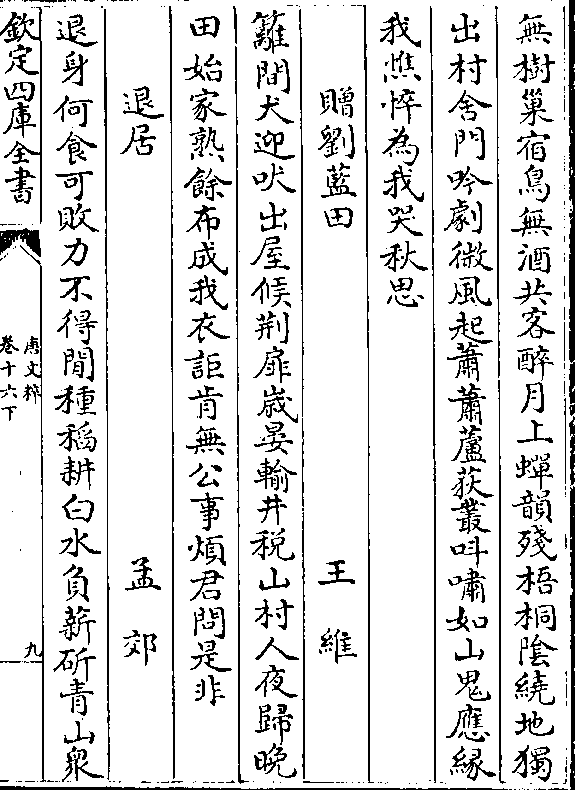 無樹巢宿鳥無酒共客醉月上蟬韻殘梧桐陰繞地獨
出村舍門吟劇微風起蕭蕭蘆荻叢呌嘯如山鬼應緣
我憔悴為我哭秋思
贈劉藍田 王維
籬間犬迎吠出屋候荆扉歲晏輸井稅山村人夜歸晚
田始家熟餘布成我衣詎肯無公事煩君問是非
退居 孟郊
退身何食可敗力不得閒種稻耕白水負薪斫青山衆
欽定四庫全書
唐文粹
卷十六下
九